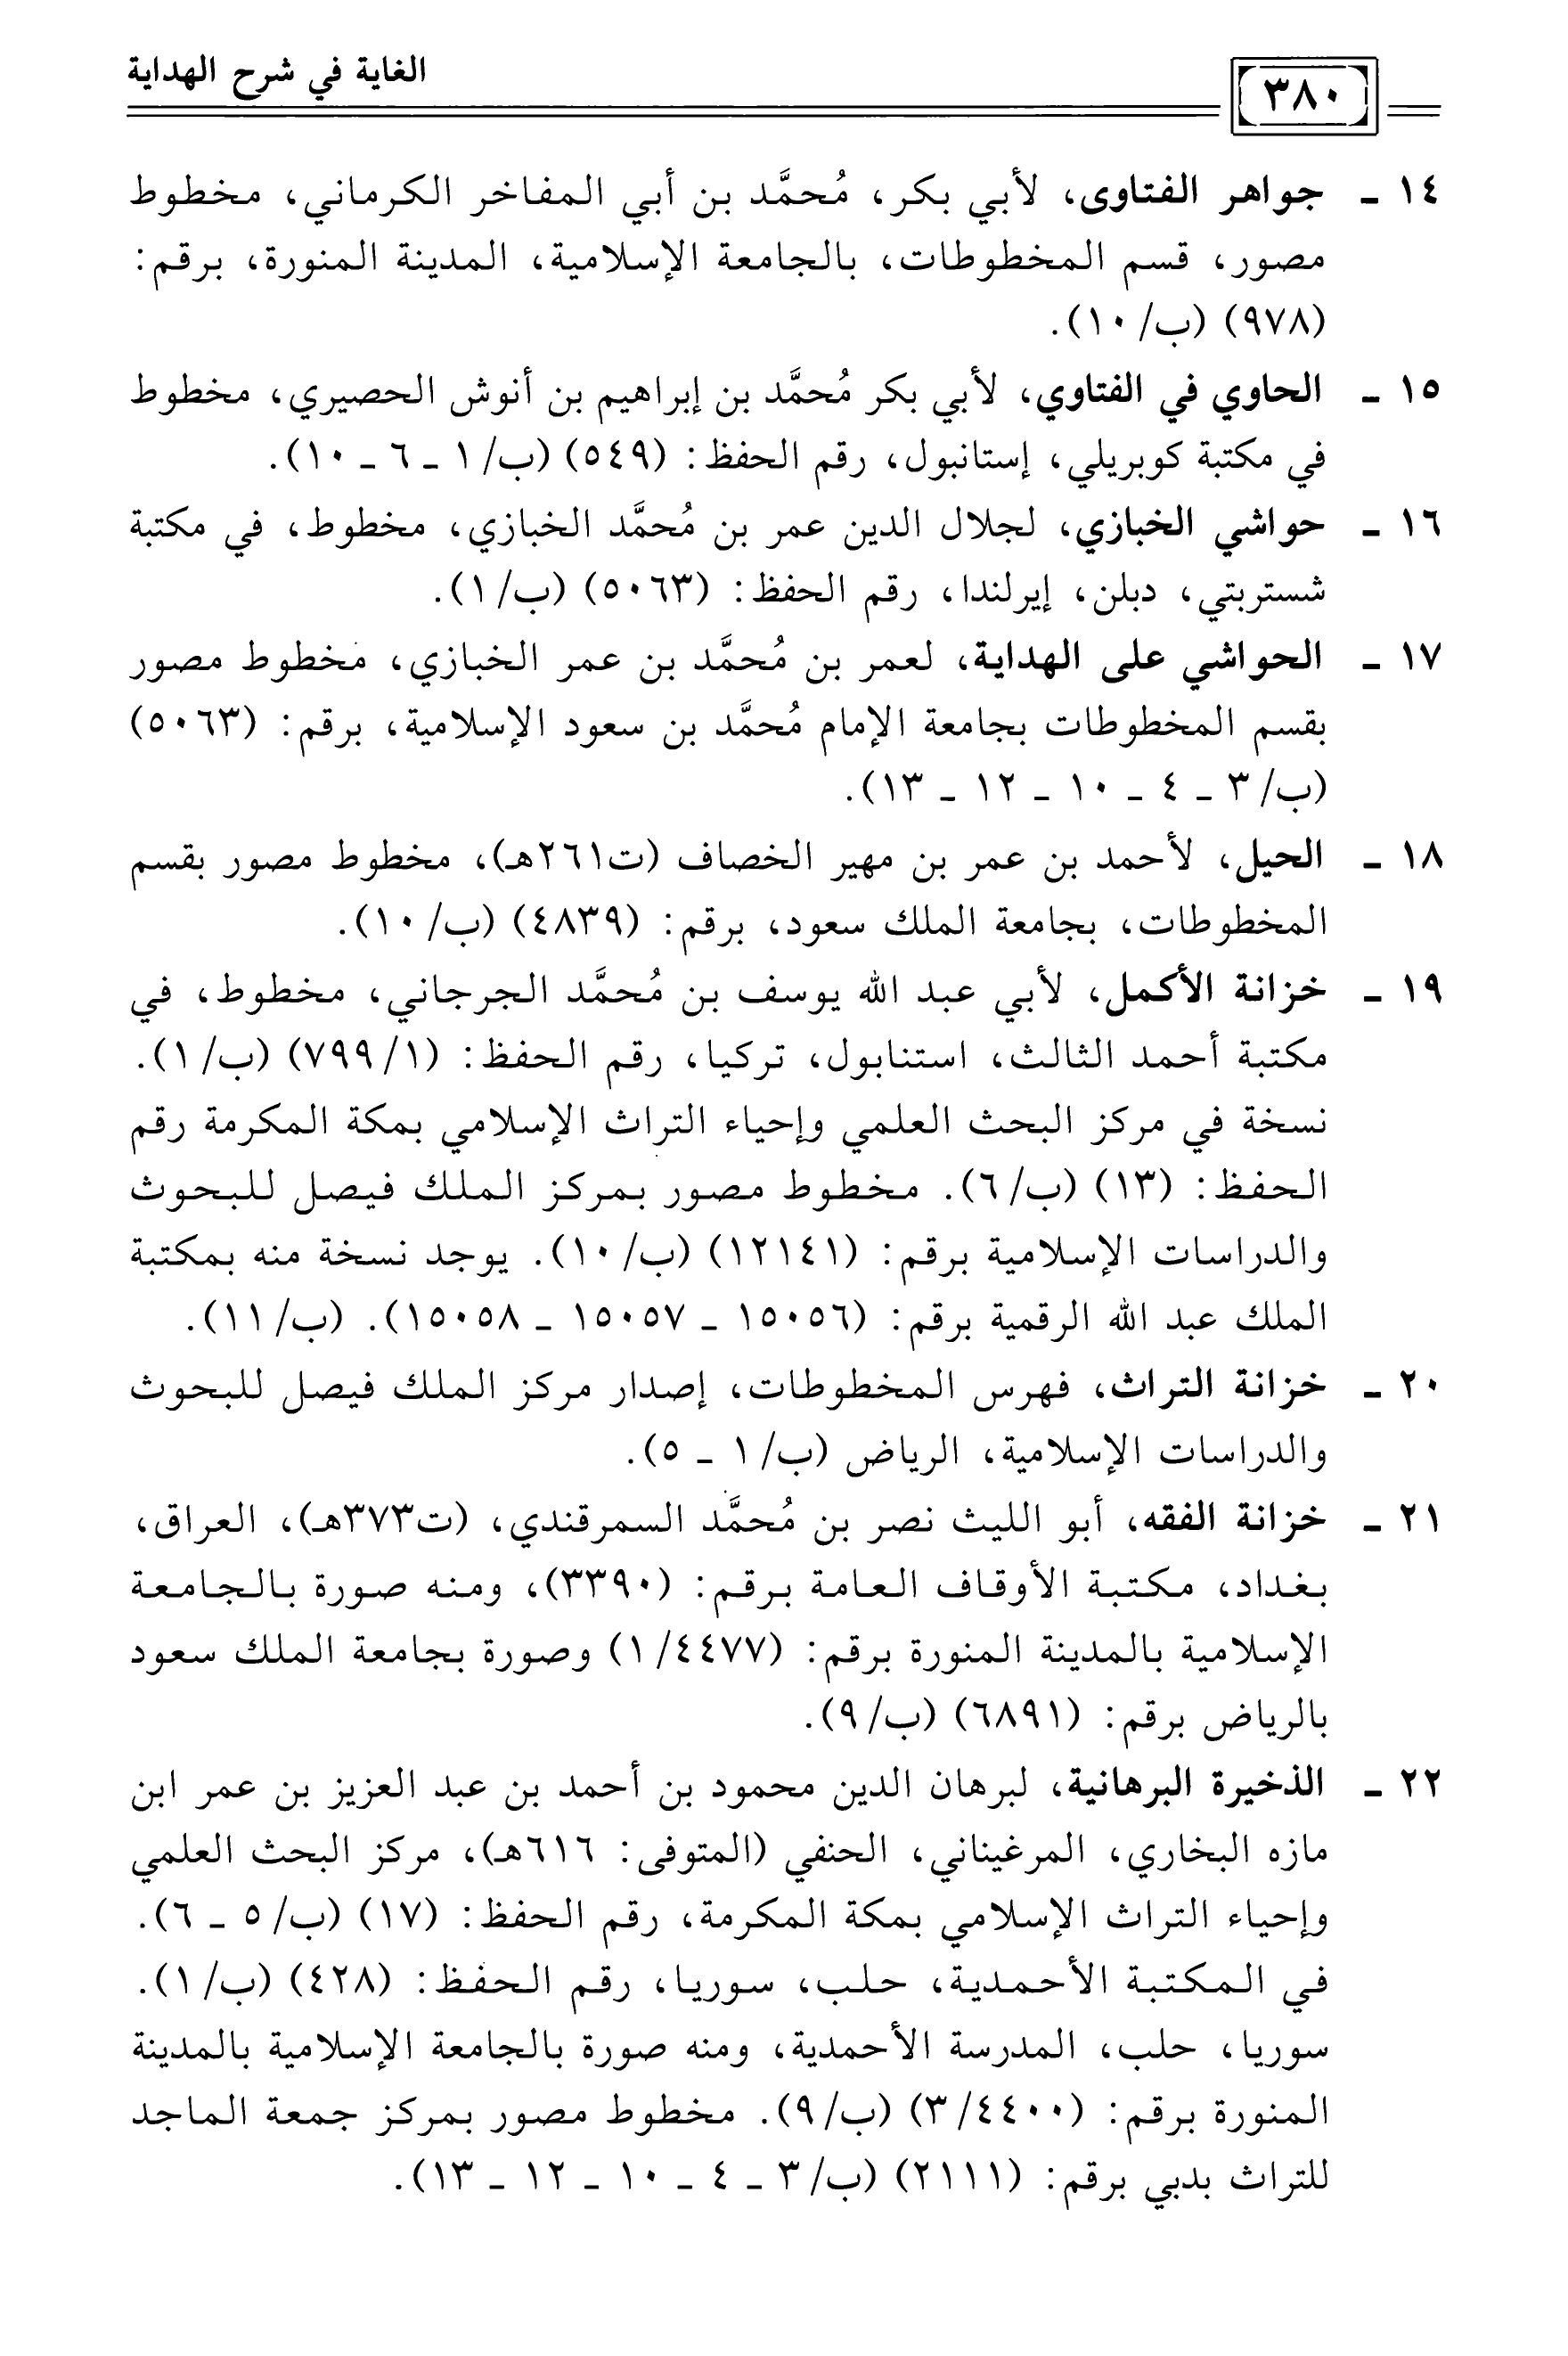 الغاية في شرح الهداية
٣٨٠
١٤ ـ جواهر الفتاوى، لأبي بكر، مُحمَّد بن أبي المفاخر الكرماني، مخطوط
مصور، قسم المخطوطات، بالجامعة الإسلامية، المدينة المنورة، برقم:
(٩٧٨) (ب/١٠).
١٥ ـ الحاوي في الفتاوي، لأبي بكر مُحمَّد بن إبراهيم بن أنوش الحصيري، مخطوط
في مكتبة كوبريلي، إستانبول، رقم الحفظ: (٥٤٩) (ب/١ ـ ٦ ـ ١٠).
١٦ ـ حواشي الخبازي، لجلال الدين عمر بن مُحمَّد الخبازي، مخطوط، في مكتبة
شستربتي، دبلن، إيرلندا، رقم الحفظ: (٥٠٦٣) (ب/١).
١٧ ـ الحواشي على الهداية، لعمر بن مُحمَّد بن عمر الخبازي، مخطوط مصور
بقسم المخطوطات بجامعة الإمام مُحمَّد بن سعود الإسلامية، برقم: (٥٠٦٣)
(ب/٣ ـ ٤ ـ ١٠ ـ ١٢ ـ ١٣).
١٨ ـ الحيل، لأحمد بن عمر بن مهير الخصاف (ت٢٦١هـ)، مخطوط مصور بقسم
المخطوطات، بجامعة الملك سعود، برقم: (٤٨٣٩) (ب/١٠).
١٩ ـ خزانة الأكمل، لأبي عبد الله يوسف بن مُحمَّد الجرجاني، مخطوط، في
مكتبة أحمد الثالث، استنابول، تركيا، رقم الحفظ: (٧٩٩/١) (ب/١).
نسخة في مركز البحث العلمي وإحياء التراث الإسلامي بمكة المكرمة رقم
الحفظ: (١٣) (ب/٦). مخطوط مصور بمركز الملك فيصل للبحوث
والدراسات الإسلامية برقم: (١٢١٤١) (ب/١٠). يوجد نسخة منه بمكتبة
الملك عبد الله الرقمية برقم: (١٥٠٥٦ ـ ١٥٠٥٧ ـ ١٥٠٥٨). (ب/١١).
٢٠ ـ خزانة التراث، فهرس المخطوطات، إصدار مركز الملك فيصل للبحوث
والدراسات الإسلامية، الرياض (ب/١ ـ ٥).
٢١ ـ خزانة الفقه، أبو الليث نصر بن مُحمَّد السمرقندي، (ت٣٧٣هـ)، العراق،
بغداد، مكتبة الأوقاف العامة برقم: (٣٣٩٠)، ومنه صورة بالجامعة
الإسلامية بالمدينة المنورة برقم: (١/٤٤٧٧) وصورة بجامعة الملك سعود
بالرياض برقم: (٦٨٩١) (ب/٩).
٢٢ ـ الذخيرة البرهانية، لبرهان الدين محمود بن أحمد بن عبد العزيز بن عمر ابن
مازه البخاري، المرغيناني، الحنفي (المتوفى: ٦١٦هـ)، مركز البحث العلمي
وإحياء التراث الإسلامي بمكة المكرمة، رقم الحفظ: (١٧) (ب/٥ ـ ٦).
في المكتبة الأحمدية، حلب، سوريا، رقم الحفظ: (٤٢٨) (ب/١).
سوريا، حلب، المدرسة الأحمدية، ومنه صورة بالجامعة الإسلامية بالمدينة
المنورة برقم: (٣/٤٤٠٠) (ب/٩). مخطوط مصور بمركز جمعة الماجد
للتراث بدبي برقم: (٢١١١) (ب/٣ ـ ٤ ـ ١٠ ـ ١٢ ـ ١٣).